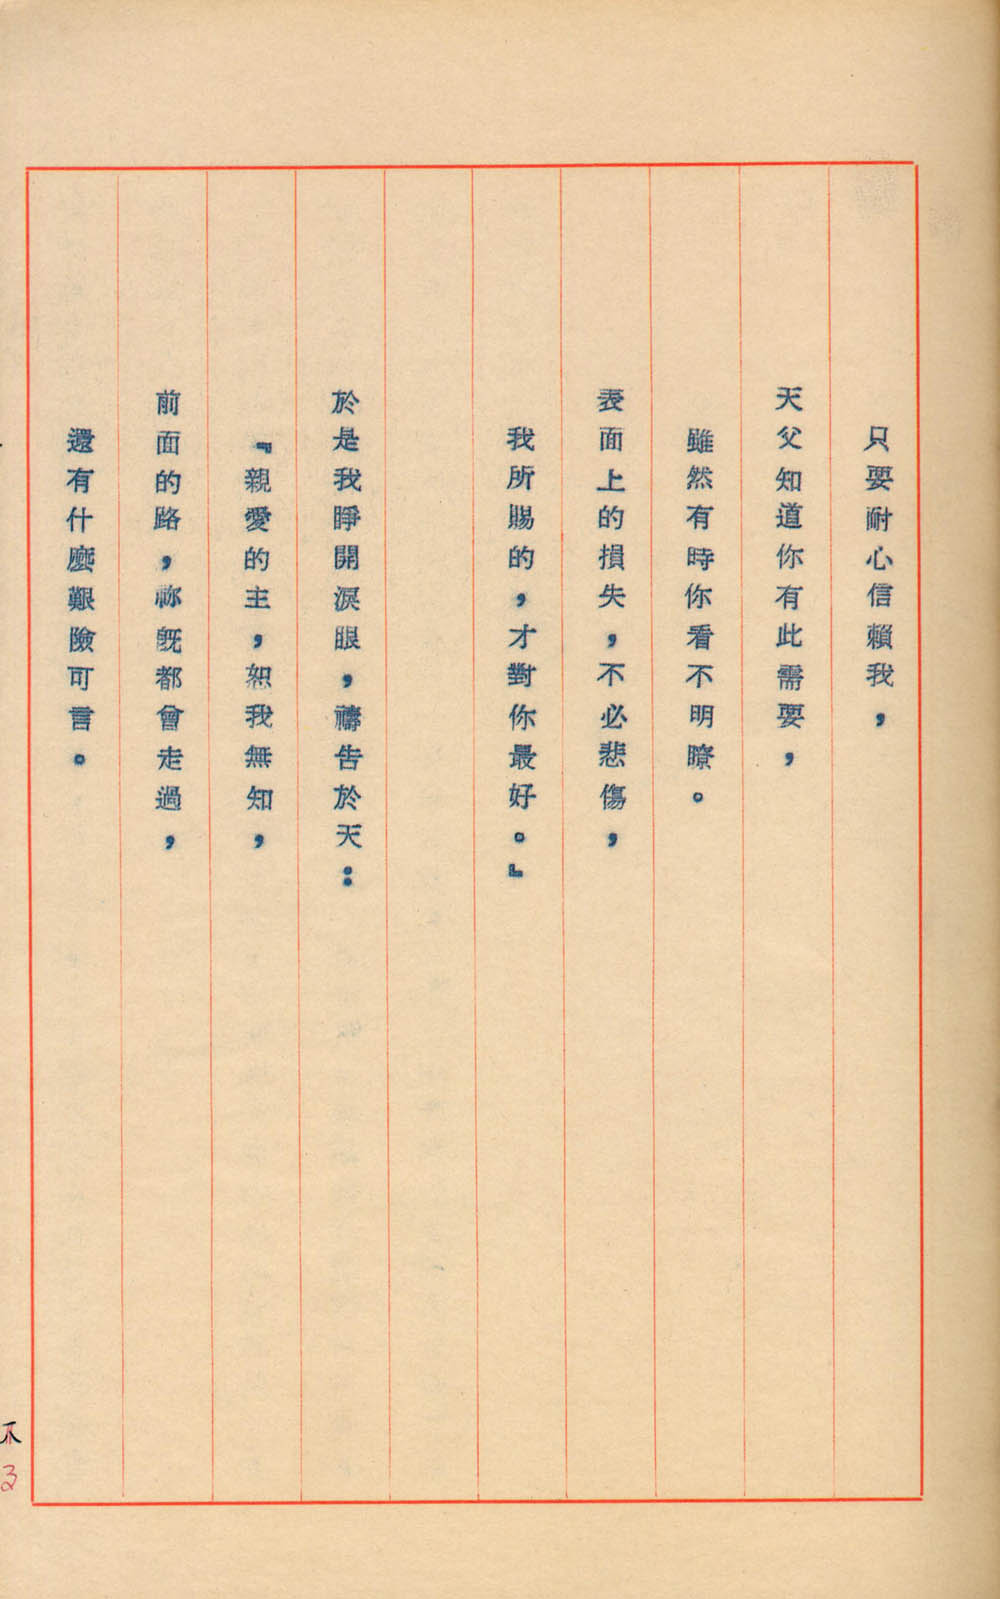 只要耐心信賴我，
天父知道你有此需要，
雖然有時你看不明瞭。
表面上的損失，不必悲傷，
我所賜的，才對你最好。』
於是我睜開淚眼，禱告於天：
『親愛的主，恕我無知，
前面的路，祢既都曾走過，
還有什麼艱險可言。